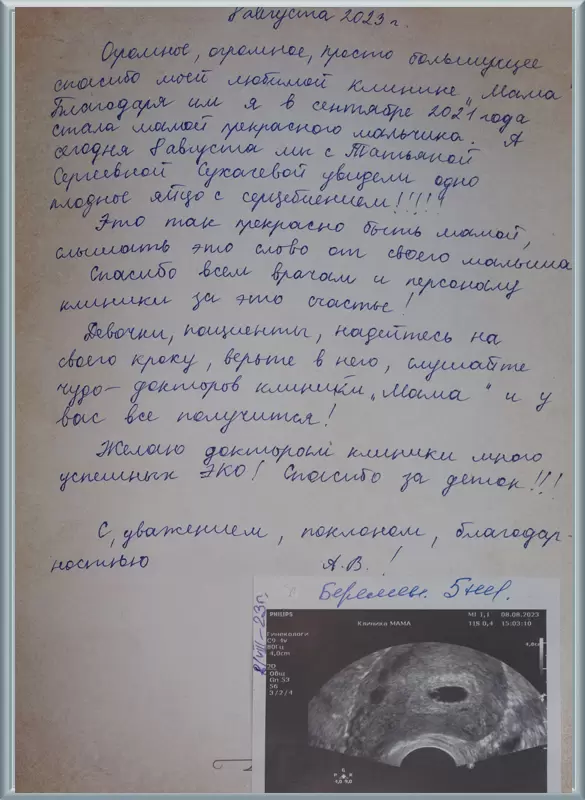 8 августа 2023 г.
Огромное, огромное, просто большущее
спасибо моей любимой клинике „Мама"
Благодаря им я в сентябре 2021 года
стала мамой прекрасного мальчика. А
сегодня 8 августа мы с Татьяной
Сергеевной Сухачевой увидели одно
плодное яйцо с серцебиением!!!!!
Это так прекрасно быть мамой,
слышать это слово от своего малыша
Спасибо всем врачам и персоналу
клиники за это счастье!
Девочки, пациенты, надейтесь на
своего кроху, верьте в него, слушайте
чудо-докторов клиники „Мама" и у
вас все получится!
Желаю докторам клиники много
успешных ЭКО! Спасибо за деток!!!
С уважением, поклоном, благодар-
ностью А.В.!
Беремен. 5 нед.
8/VIII-23г.
PHILIPS
MI 1,1 08.08.2023
Клиника МАМА
TIS 0,4 15:03:10
Гинекологи
C9 4v
80Гц
4,0cm
2D
Общ
Gn 53
56
3/2/4
4,0см